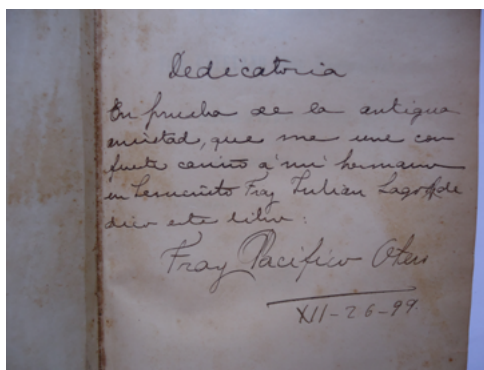 Dedicatoria
En prueba de la antigua
amistad, que me une con
fuerte cariño a mi hermano
en Fray Julian Lagos, de
dico este libro:
Fray Pacifico Otero
XII-26-99.